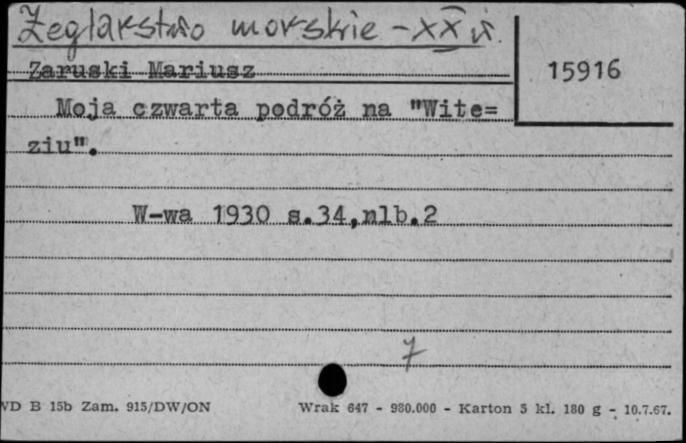 Żeglarstwo morskie - XX w.
Zaruski Mariusz
15916
Moja czwarta podróż na "Wite=
ziu".
W-wa 1930 s.34,nlb.2
7
VD B 15b Zam. 915/DW/ON
Wrak 647 - 980.000 - Karton 5 kl. 180 g - 10.7.67.